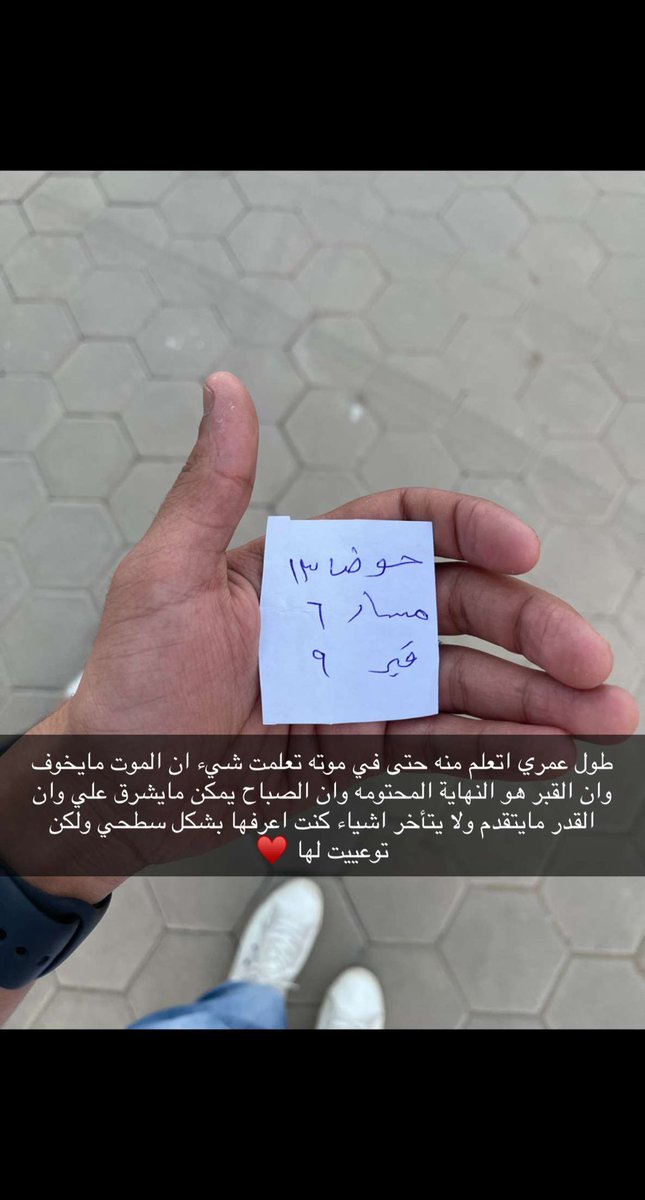 حوضا ١٣
مسار ٦
قبر ٩
طول عمري اتعلم منه حتى في موته تعلمت شيء ان الموت مايخوف
وان القبر هو النهاية المحتومه وان الصباح يمكن مايشرق علي وان
القدر مايتقدم ولا يتأخر اشياء كنت اعرفها بشكل سطحي ولكن
توعييت لها ♥️